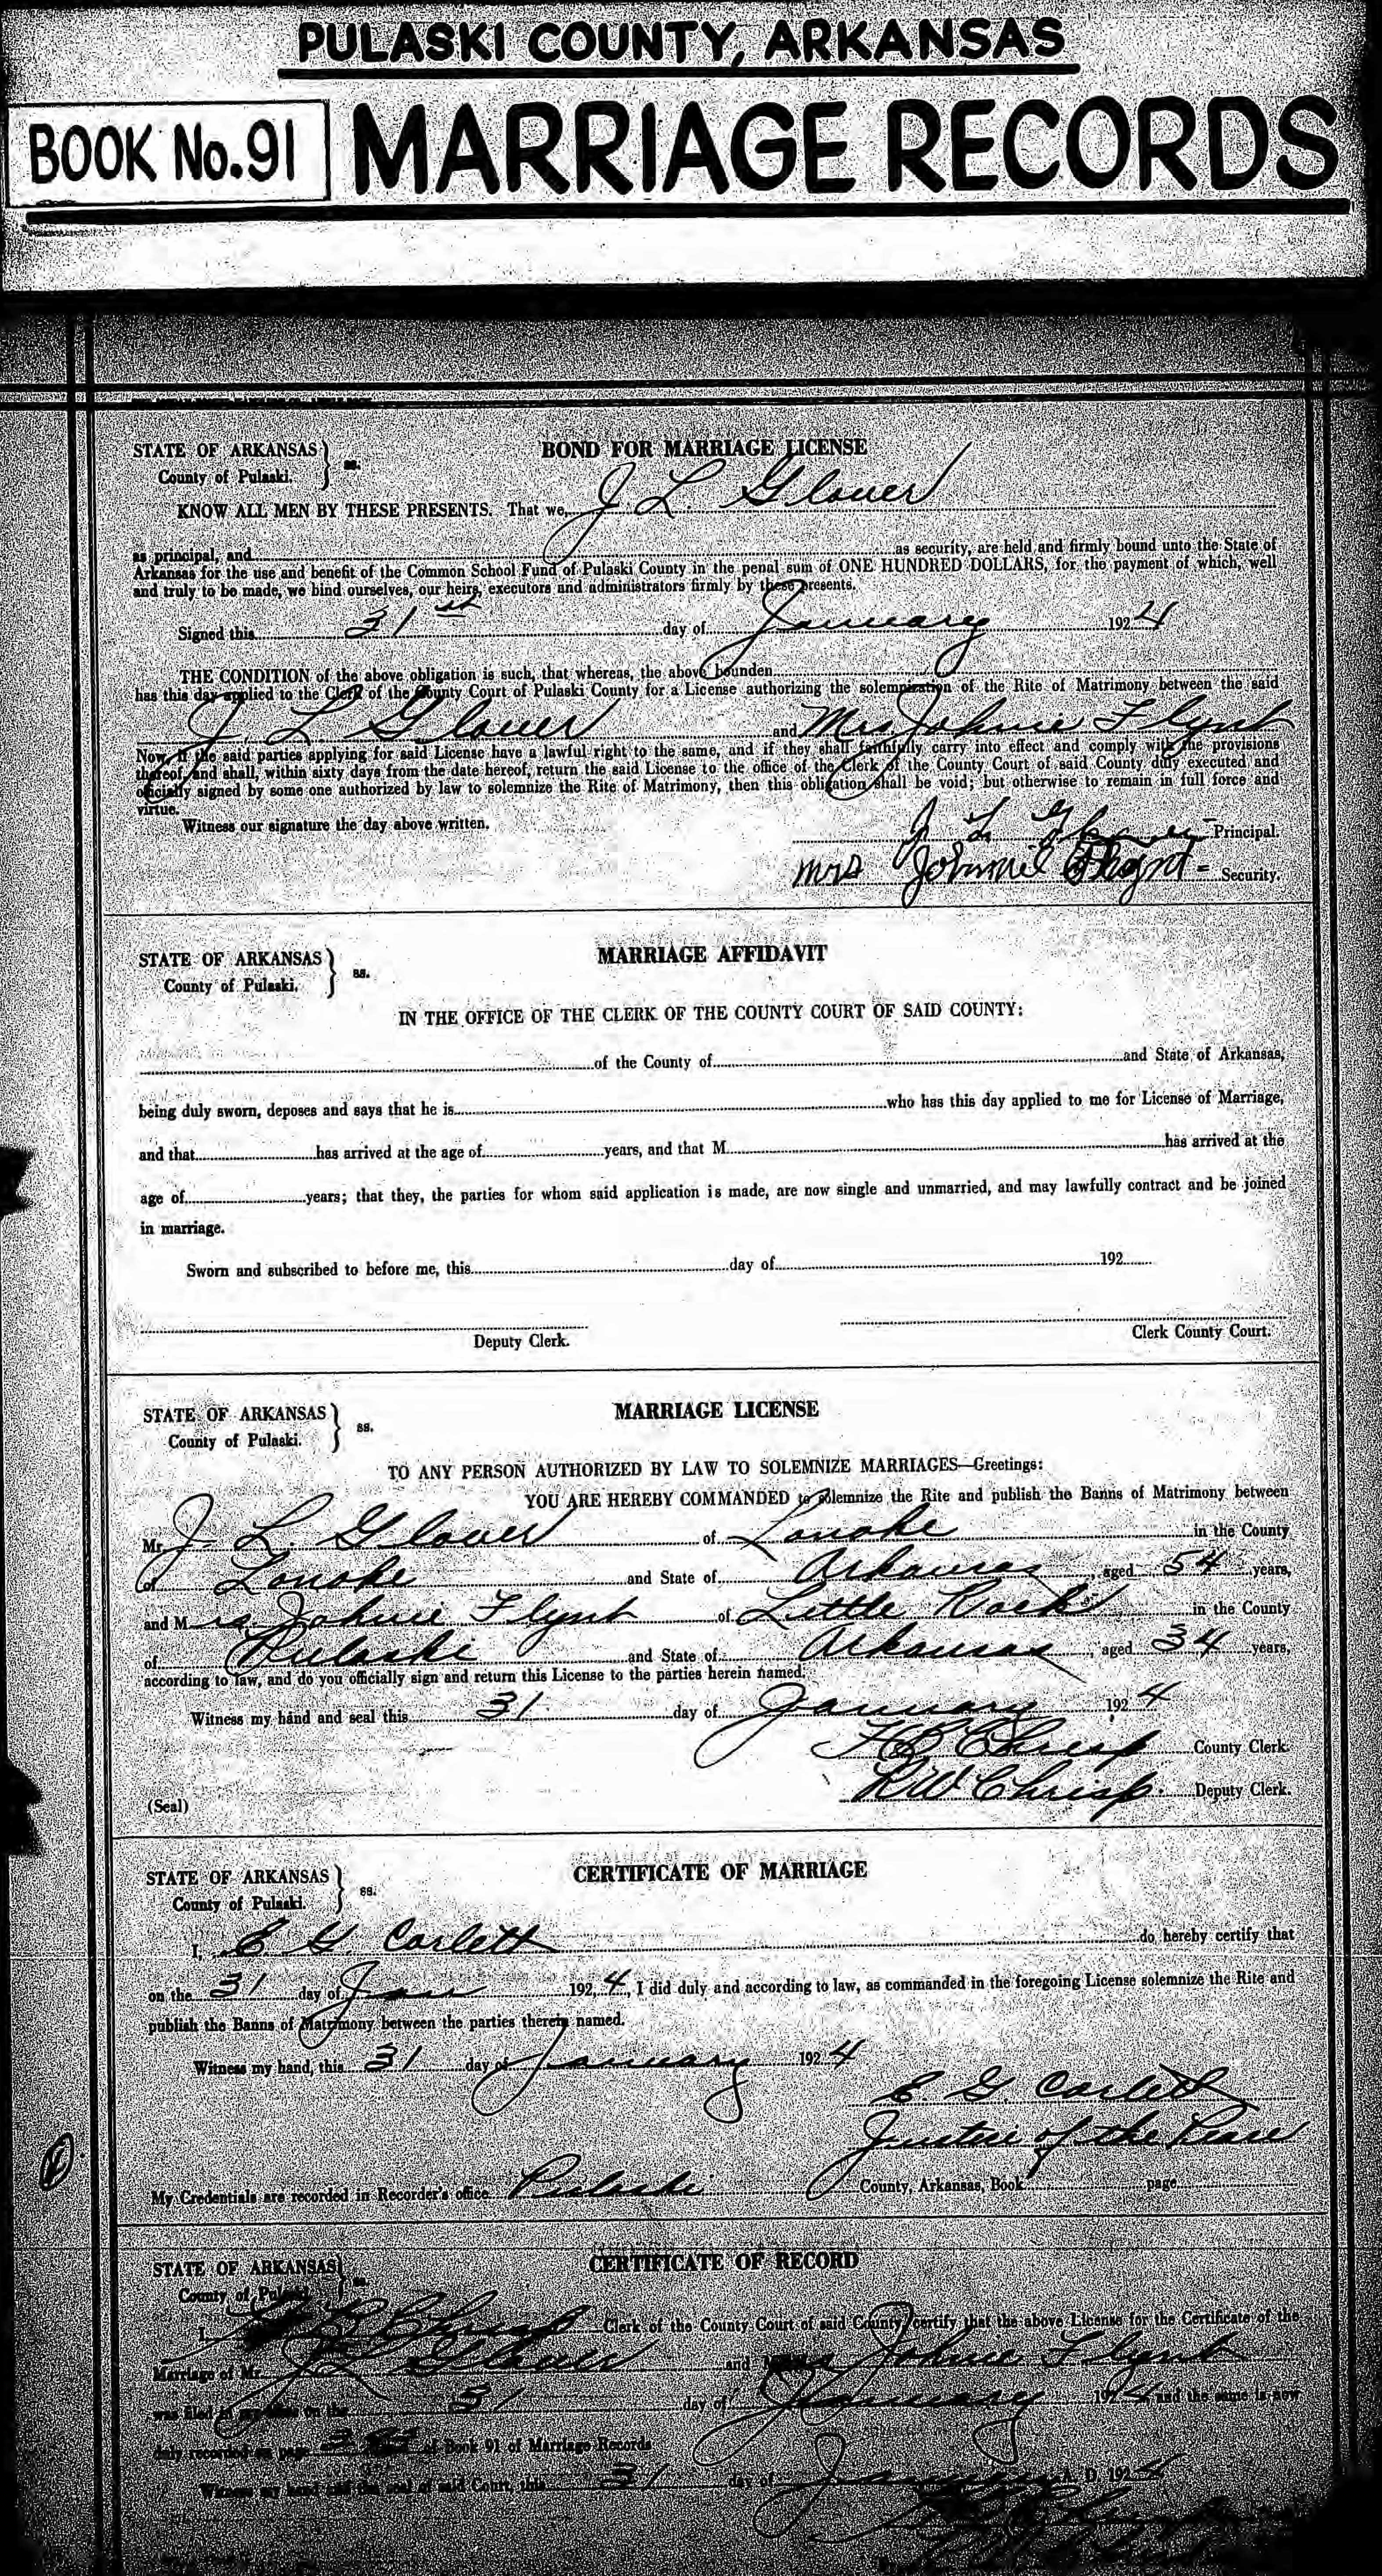 PULASKI COUNTY, ARKANSAS
BOOK No.91
MARRIAGE RECORDS
STATE OF ARKANSAS } ss. BOND FOR MARRIAGE LICENSE
County of Pulaski.
KNOW ALL MEN BY THESE PRESENTS. That we, J. L. Glover
as principal, and as security, are held and firmly bound unto the State of
Arkansas for the use and benefit of the Common School Fund of Pulaski County in the penal sum of ONE HUNDRED DOLLARS, for the payment of which, well
and truly to be made, we bind ourselves, our heirs, executors and administrators firmly by these presents.
Signed this 31st day of January 1924
THE CONDITION of the above obligation is such, that whereas, the above bounden
has this day applied to the Clerk of the County Court of Pulaski County for a License authorizing the solemnization of the Rite of Matrimony between the said
J. L. Glover and Mrs. Johnie Flynt
Now, if the said parties applying for said License have a lawful right to the same, and if they shall faithfully carry into effect and comply with the provisions
thereof, and shall, within sixty days from the date hereof, return the said License to the office of the Clerk of the County Court of said County duly executed and
officially signed by some one authorized by law to solemnize the Rite of Matrimony, then this obligation shall be void; but otherwise to remain in full force and
virtue.
Witness our signature the day above written.
J. L. Glover Principal.
Mrs Johnnie Flynt Security.
STATE OF ARKANSAS } ss. MARRIAGE AFFIDAVIT
County of Pulaski.
IN THE OFFICE OF THE CLERK OF THE COUNTY COURT OF SAID COUNTY:
of the County of and State of Arkansas,
being duly sworn, deposes and says that he is who has this day applied to me for License of Marriage,
and that has arrived at the age of years, and that M has arrived at the
age of years; that they, the parties for whom said application is made, are now single and unmarried, and may lawfully contract and be joined
in marriage.
Sworn and subscribed to before me, this day of 192
Deputy Clerk. Clerk County Court.
STATE OF ARKANSAS } ss. MARRIAGE LICENSE
County of Pulaski.
TO ANY PERSON AUTHORIZED BY LAW TO SOLEMNIZE MARRIAGES—Greetings:
YOU ARE HEREBY COMMANDED to solemnize the Rite and publish the Banns of Matrimony between
Mr. J. L. Glover of Lonoke in the County
of Lonoke and State of Arkansas, aged 54 years,
and Mrs. Johnie Flynt of Little Rock in the County
of Pulaski and State of Arkansas, aged 34 years,
according to law, and do you officially sign and return this License to the parties herein named.
Witness my hand and seal this 31 day of January 1924
H B Chrisp County Clerk.
R W Chrisp Deputy Clerk.
(Seal)
STATE OF ARKANSAS } ss. CERTIFICATE OF MARRIAGE
County of Pulaski.
I, E G Corlett do hereby certify that
on the 31 day of Jan 1924, I did duly and according to law, as commanded in the foregoing License solemnize the Rite and
publish the Banns of Matrimony between the parties therein named.
Witness my hand, this 31 day of January 1924
E G. Corlett
Justice of the Peace
My Credentials are recorded in Recorder's office Pulaski County, Arkansas, Book page
STATE OF ARKANSAS } ss. CERTIFICATE OF RECORD
County of Pulaski
I, H B Chrisp Clerk of the County Court of said County, certify that the above License for the Certificate of the
Marriage of Mr. J L Glover and Mrs Johnie Flynt
was filed in my office on the 31 day of January 1924 and the same is now
duly recorded on page of Book 91 of Marriage Records
Witness my hand and the seal of said Court, this 31 day of January A. D. 1924